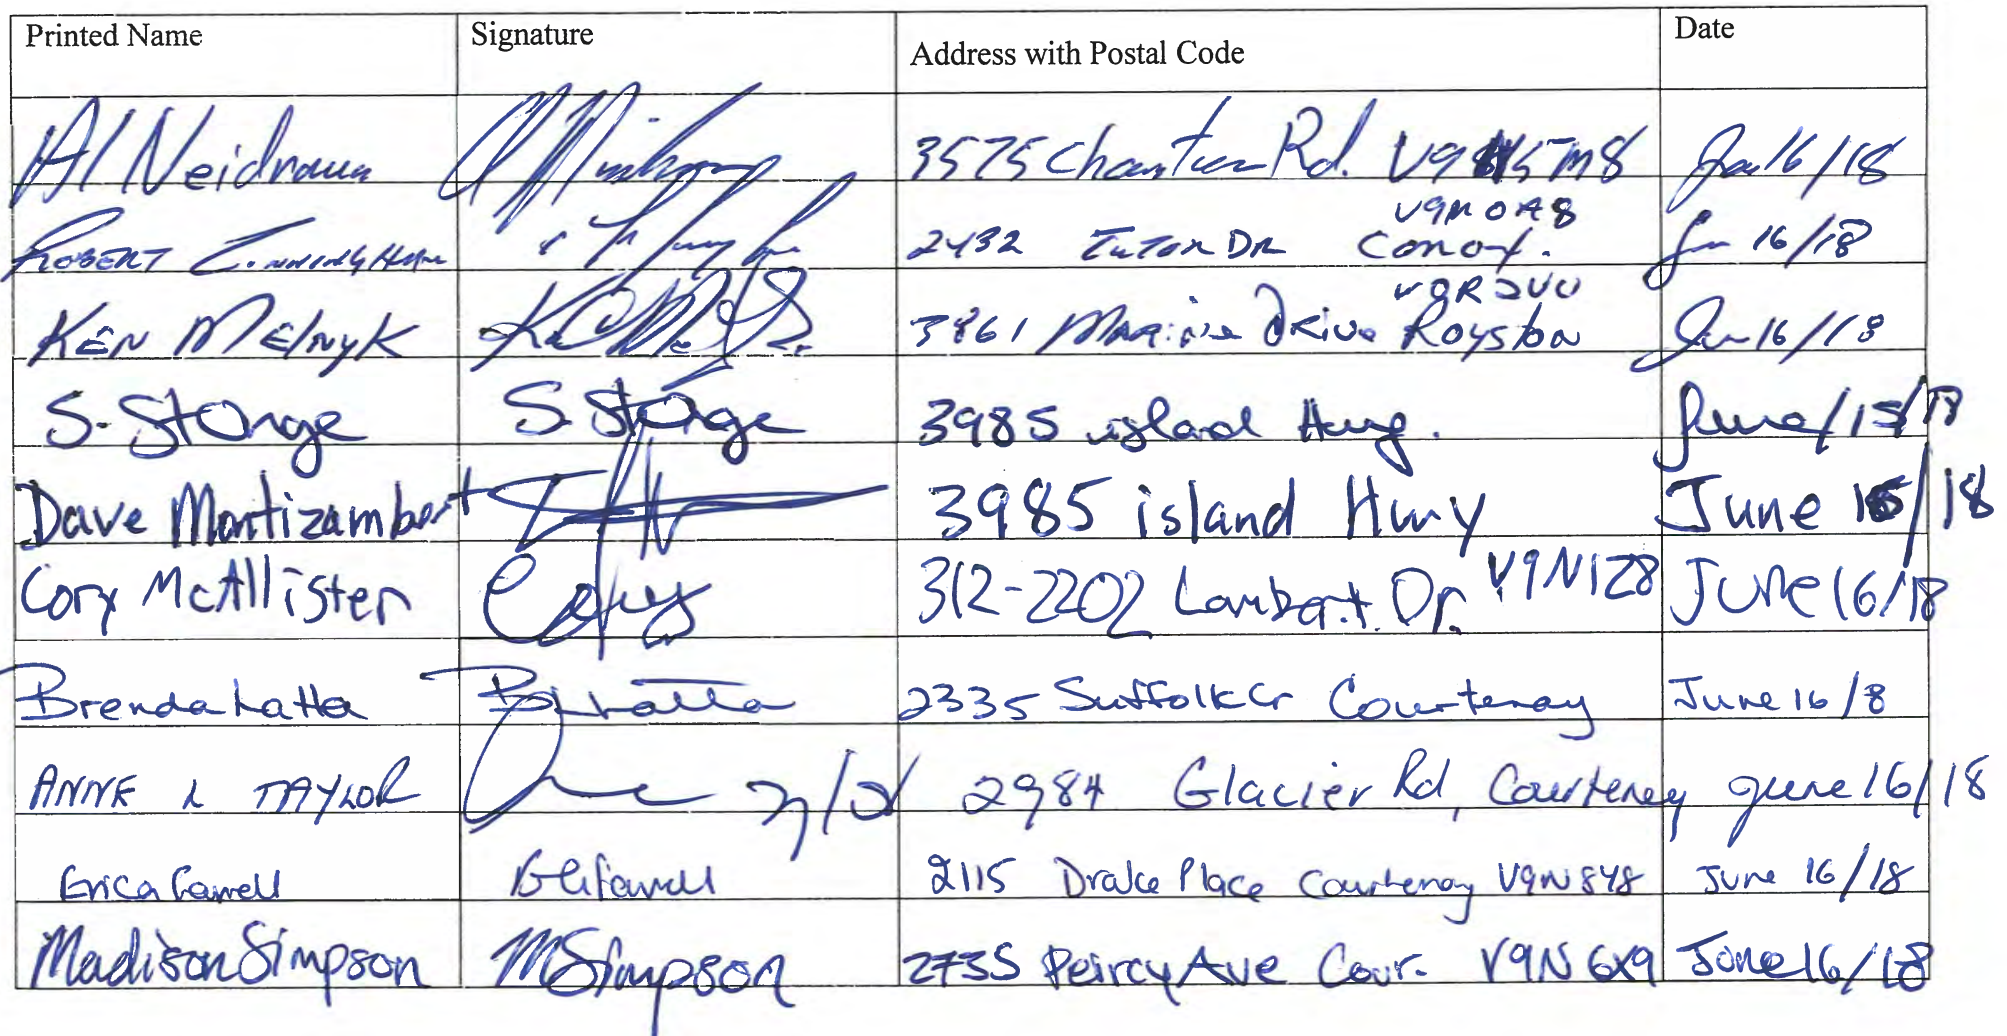 Printed Name Signature Address with Postal Code Date
Al Neidraua 3575 Chantier Rd. V9 5M8 Jun 16/18
V9M 0A8
ROBERT CUNNINGHAM 2432 TUTOR DR COMOX. Jun 16/18
V0R 2V0
KEN MELNYK 3861 Marine Drive Royston Jun 16/18
S. StOnge S. StOnge 3985 island Hwy. June/15/18
Dave Montizambert 3985 island Hwy June 16/18
Cory McAllister Cory 312-2202 Lambert Dr. V9N1Z8 June 16/18
Brenda Latta B Latta 2335 Suffolk Cr Courtenay June 16/8
ANNE L TAYLOR 2984 Glacier Rd, Courteney June 16/18
Erica Farrell 2115 Drake Place Courtenay V9N 8Y8 June 16/18
Madison Simpson MSimpson 2735 Peircy Ave Cour. V9N 6X9 June 16/18